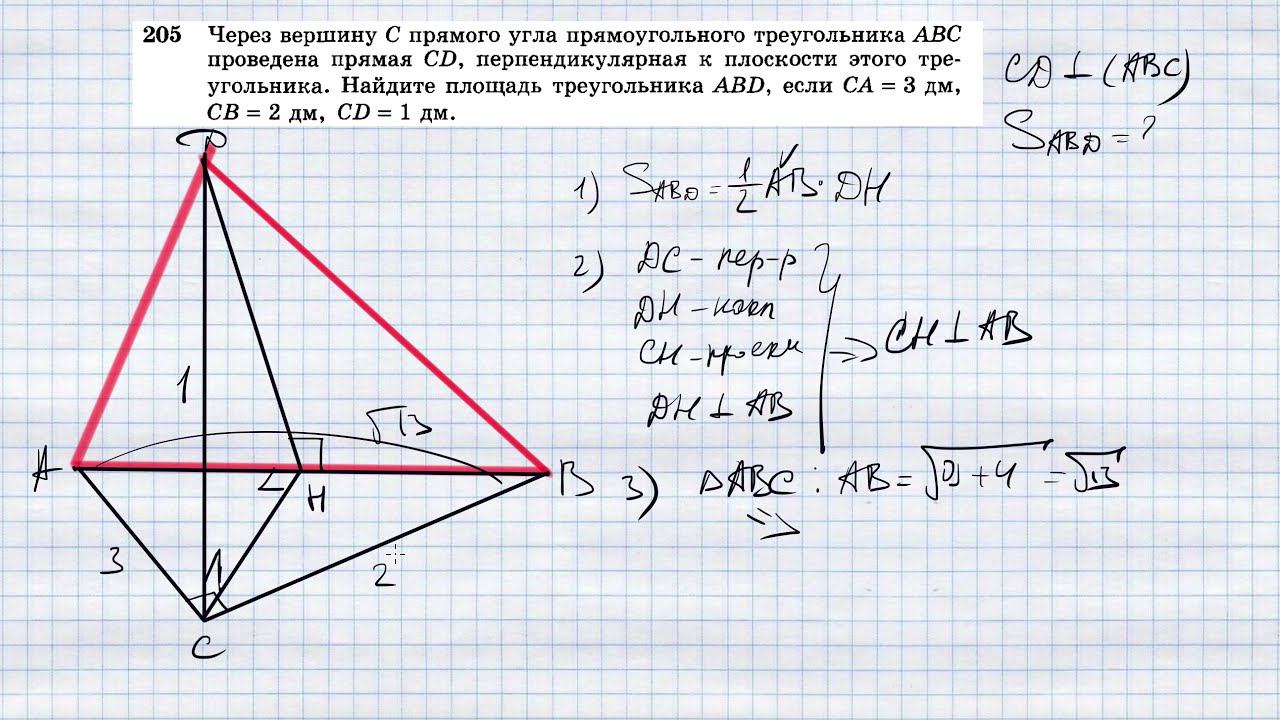 205 Через вершину C прямого угла прямоугольного треугольника ABC
проведена прямая CD, перпендикулярная к плоскости этого тре-
угольника. Найдите площадь треугольника ABD, если CA = 3 дм,
CB = 2 дм, CD = 1 дм.
CD ⊥ (ABC)
S_ABD = ?
1) S_ABD = 1/2 AB · DH
2) DC – пер-р
DH – накл
CH – проекц
DH ⊥ AB
⇒ CH ⊥ AB
3) △ABC : AB = √9+4 = √13
⇒
D
1
√13
A
H
B
3
2
C